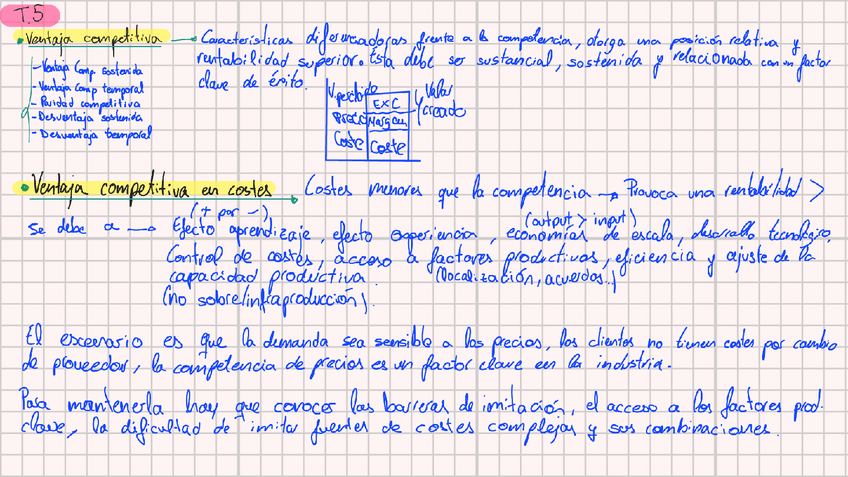 T.5
• Ventaja competitiva → Características diferenciadoras frente a la competencia, otorga una posición relativa y
rentabilidad superior. Esta debe ser sustancial, sostenida y relacionada con un factor
clave de éxito.
- Ventaja Comp. sostenida
- Ventaja Comp temporal
- Paridad competitiva
- Desventaja sostenida
- Desventaja temporal
EXC
Valor
creado
Precio
Margen
Coste
Coste
• Ventaja competitiva en costes → Costes menores que la competencia → Provoca una rentabilidad >
(+ por -) (output > input)
se debe a → Efecto aprendizaje, efecto experiencia, economías de escala, desarrollo tecnológico,
Control de costes, acceso a factores productivos, eficiencia y ajuste de la
capacidad productiva (localización, acuerdos..)
(no sobre/infraproducción).
El escenario es que la demanda sea sensible a los precios, los clientes no tienen costes por cambio
de proveedor, la competencia de precios es un factor clave en la industria.
Para mantenerla hay que conocer las barreras de imitación, el acceso a los factores prod.
clave, la dificultad de imitar fuentes de costes complejas y sus combinaciones.